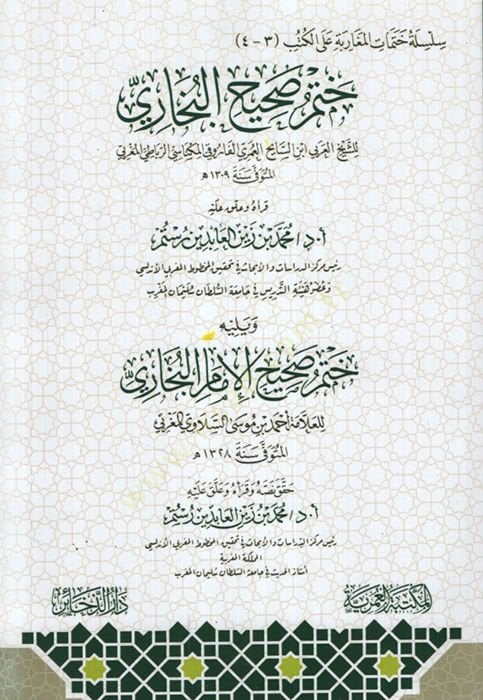 سلسلة ختمات المغاربة على الكتب (٣ - ٤)
ختم صحيح البخاري
للشيخ العربي ابن السايح العمري الفاروقي المكناسي الرباطي المغربي
المتوفى سنة ١٣٠٩ هـ
قرأه وعلق عليه
أ.د/محمد بن زين العابدين رستم
رئيس مركز الدراسات والأبحاث في تحقيق المخطوط المغربي الأندلسي
وعضو هيئة التدريس في جامعة السلطان سليمان المغرب
ويليه
ختم صحيح الإمام البخاري
للعلامة أحمد بن موسى السلاوي المغربي
المتوفى سنة ١٣٢٨ هـ
حقق نصه وقرأه وعلق عليه
أ.د/محمد بن زين العابدين رستم
رئيس مركز الدراسات والأبحاث في تحقيق المخطوط المغربي الأندلسي
المملكة المغربية
أستاذ الحديث في جامعة السلطان سليمان المغرب
المكتبة العمرية
دار الذخائر